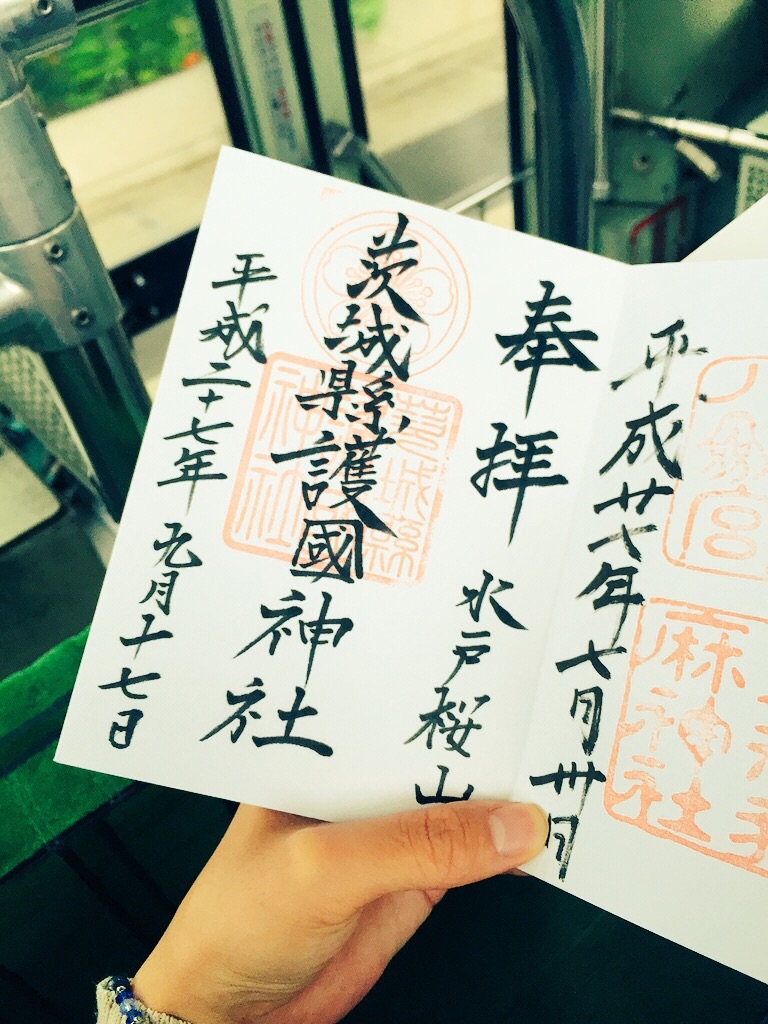 平成廿七年七月卅日
宮
麻神社
奉拝
水戸桜山
茨城縣護國神社
茨城縣
神社
平成二十七年九月十七日